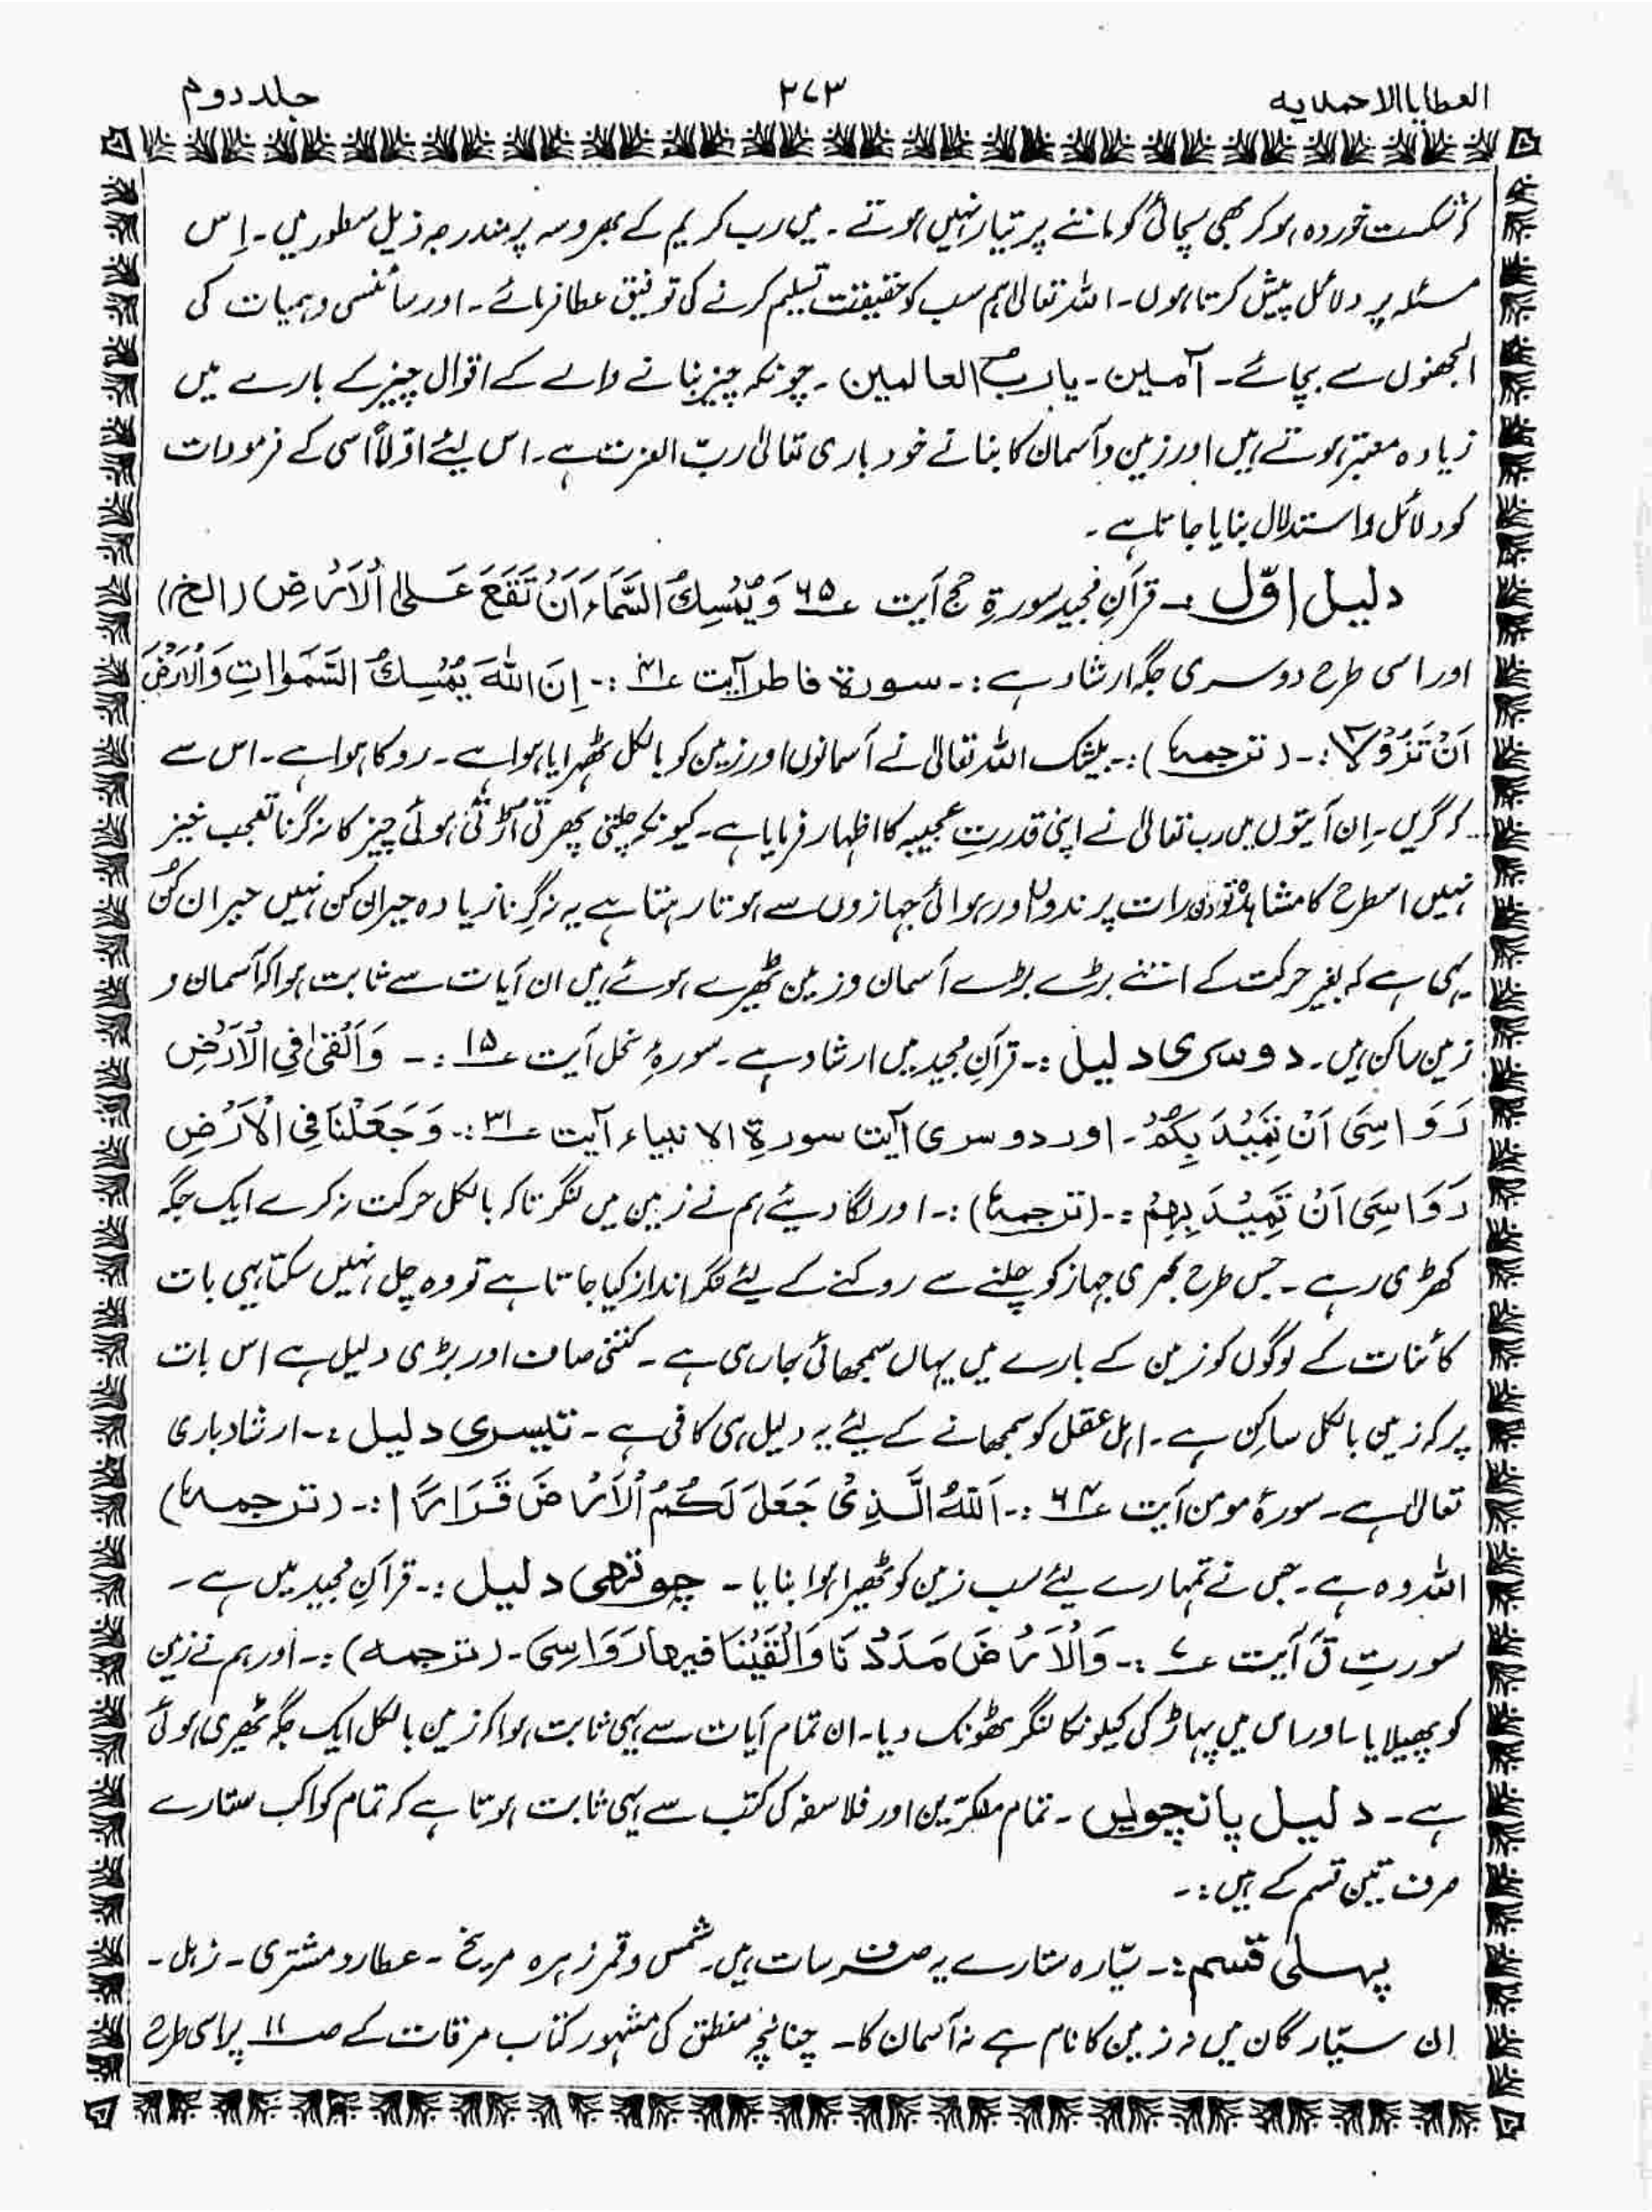 العطایا الاحمدیه ۲۷۳ جلد دوم
کہ شکست خوردہ ہو کر بھی سچائی کو ماننے پر تیار نہیں ہوتے ۔ میں رب کریم کے بھروسہ پر مندرجہ ذیل سطور میں ۔ اِس
مسئلہ پر دلائل پیش کرتا ہوں ۔ اللہ تعالیٰ ہم سب کو حقیقت تسلیم کرنے کی توفیق عطا فرمائے ۔ اور سائنسی وہمیات کی
الجھنوں سے بچائے ۔ آمین ۔ یا رب العالمین ۔ چونکہ چیز بنانے والے کے اقوال چیز کے بارے میں
زیادہ معتبر ہوتے ہیں اور زمین و آسمان کا بنانے خود باری تعالیٰ ربّ العزت ہے ۔ اس لیئے اوّلاً اسی کے فرمودات
کو دلائل و استدلال بنایا جاتا ہے ۔
دلیل اوّل :۔ قرآنِ مجید سورۃِ حج آیت ع۶۵ وَیُمْسِكُ السَّمَاءَ اَنْ تَقَعَ عَلَی الْاَرْضِ (الخ)
اور اسی طرح دوسری جگہ ارشاد ہے :۔ سورۃ فاطر آیت ع۴۱ :۔ اِنَّ اللهَ یُمْسِكُ السَّمَوَاتِ وَالْاَرْضَ
اَنْ تَزُوْلَا :۔ (ترجمہ) :۔ بیشک اللہ تعالیٰ نے آسمانوں اور زمین کو بالکل ٹھرایا ہوا ہے ۔ روکا ہوا ہے ۔ اس سے
کہ گریں ۔ اِن آیتوں میں رب تعالیٰ نے اپنی قدرتِ عجیبہ کا اظہار فرمایا ہے ۔ کیونکہ چلتی پھرتی اُڑتی ہوئی چیز کا نہ گرنا تعجب خیز
نہیں اسطرح کا مشاہدہ تو دن رات پرندوں اور ہوائی جہازوں سے ہوتا رہتا ہے یہ نہ گِرنا زیادہ حیران کن نہیں حیران کُن
یہی ہے کہ بغیر حرکت کے اتنے بڑے بڑے آسمان و زمین ٹھیرے ہوئے ہیں ان آیات سے ثابت ہوا کہ آسمان و
زمین ساکن ہیں ۔ دوسری دلیل :۔ قرآنِ مجید میں ارشاد ہے ۔ سورۂ نحل آیت ع۱۵ :۔ وَاَلْقٰی فِی الْاَرْضِ
رَوَاسِیَ اَنْ تَمِیْدَ بِکُمْ ۔ اور دوسری آیت سورۃِ الانبیاء آیت ع۳۱ :۔ وَجَعَلْنَا فِی الْاَرْضِ
رَوَاسِیَ اَنْ تَمِیْدَ بِهِمْ :۔ (ترجمہ) :۔ اور لگا دیئے ہم نے زمین میں لنگر تاکہ بالکل حرکت نہ کرے ایک جگہ
کھڑی رہے ۔ جس طرح بحری جہاز کو چلنے سے روکنے کے لیئے لنگر انداز کیا جاتا ہے تو وہ چل نہیں سکتا یہی بات
کائنات کے لوگوں کو زمین کے بارے میں یہاں سمجھائی جا رہی ہے ۔ کتنی صاف اور بڑی دلیل ہے اس بات
پر کہ زمین بالکل ساکِن ہے ۔ اہل عقل کو سمجھانے کے لیئے یہ دلیل ہی کافی ہے ۔ تیسری دلیل :۔ ارشاد باری
تعالیٰ ہے ۔ سورۂ مومن آیت ع۶۴ :۔ اَللهُ الَّذِیْ جَعَلَ لَکُمُ الْاَرْضَ قَرَارًا :۔ (ترجمہ)
اللہ وہ ہے ۔ جس نے تمہارے لیئے سب زمین کو ٹھیرا ہوا بنایا ۔ چوتھی دلیل :۔ قرآنِ مجید میں ہے ۔
سورتِ قٓ آیت ع۷ :۔ وَالْاَرْضَ مَدَدْنَا وَاَلْقَیْنَا فِیهَا رَوَاسِیَ ۔ (ترجمہ) :۔ اور ہم نے زمین
کو پھیلایا ۔ اور اس میں پہاڑ کی کیلونکا لنگر ٹھونک دیا ۔ ان تمام آیات سے یہی ثابت ہوا کہ زمین بالکل ایک جگہ ٹھیری ہوئی
ہے ۔ دلیل پانچویں ۔ تمام مفکرّین اور فلاسفہ کی کتب سے یہی ثابت ہوتا ہے کہ تمام کواکب ستارے
صرف تین قسم کے ہیں :۔
پہلی قسم :۔ سیّارہ ستارے یہ صرف سات ہیں ۔ شمس و قمر زہرہ مریخ ۔ عطارد مشتری ۔ زہل ۔
ان سیّارگان میں نہ زمین کا نام ہے نہ آسمان کا ۔ چنانچہ منطق کی مشہور کتاب مرقات کے صـ۱۱ پر اسی طرح